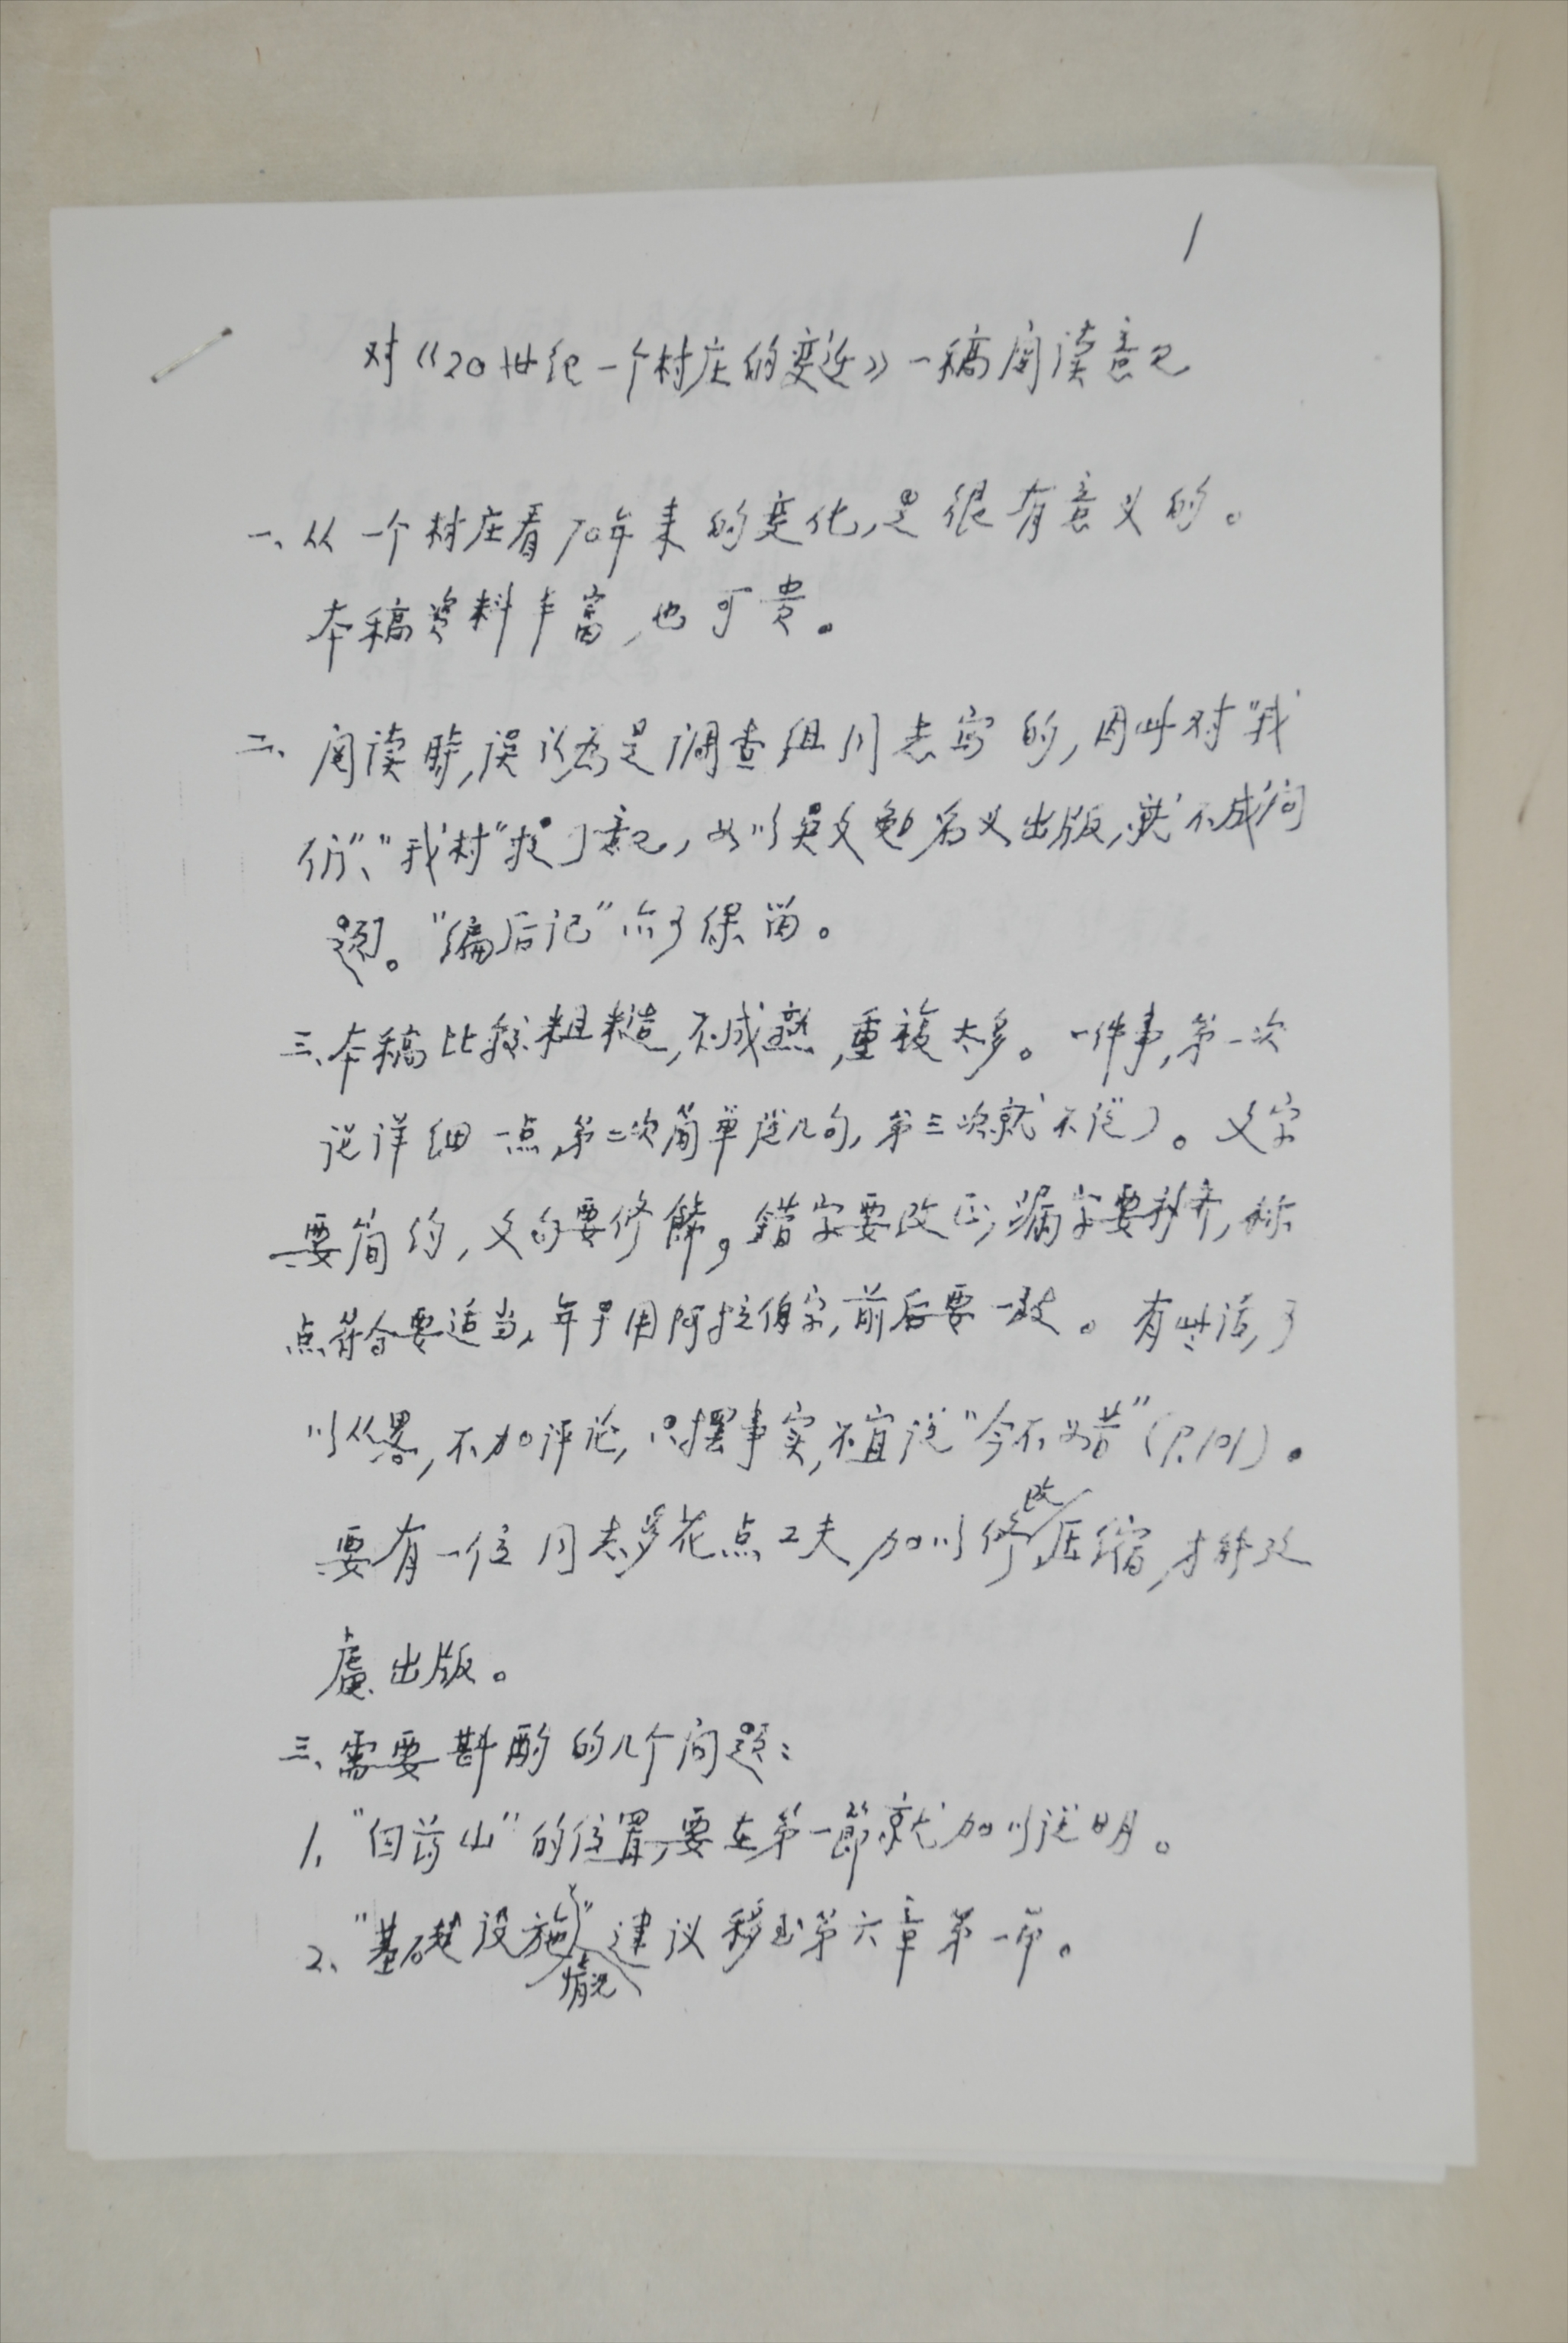 1
对《20世纪一个村庄的变迁》一稿阅读意见
一、从一个村庄看70年来的变化,是很有意义的。
本稿资料丰富,也可贵。
二、阅读时,误认为是调查组同志写的,因此对"我
们"、"我村"提了意见,如以吴文勉名义出版,就不成问
题。"编后记"亦可保留。
三、本稿比较粗糙,不成熟,重複太多。一件事,第一次
说详细一点,第二次简单说几句,第三次就不说了。文字
要简约,文句要修饰。错字要改正,漏字要补齐,标
点符合要适当,年号用阿拉伯字,前后要一致。有些话,可
以从略,不加评论,只摆事实,不宜说"今不如昔"(P.101)。
要有一位同志多花点工夫,加以修改压缩,才能考
虑出版。
三、需要斟酌的几个问题:
1、"白荡山"的位置,要在第一節就加以说明。
2、"基礎设施情况"建议移至第六章第一节。